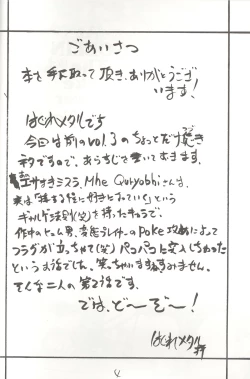 ごあいさつ
本を手に取って頂き、ありがとうござ
います!
はぐれメタルです
今回は前のvol.3のちょっとだけ続き
ネタですので、あらすじを書いておきます。
エサオミスラ、Mhe Quryobhiさんは、
実は「をする程に好きになっていく」という
ギャルゲ法則(笑)を持ったキャラで、
作中のヒューム男、変態プレイヤーのPoke攻めによって
フラグが立っちゃって(笑)
というお話でした。笑っちゃいますねすみません。
そんな二人の第2話です。
では、ど〜ぞ〜!
はぐれメタル